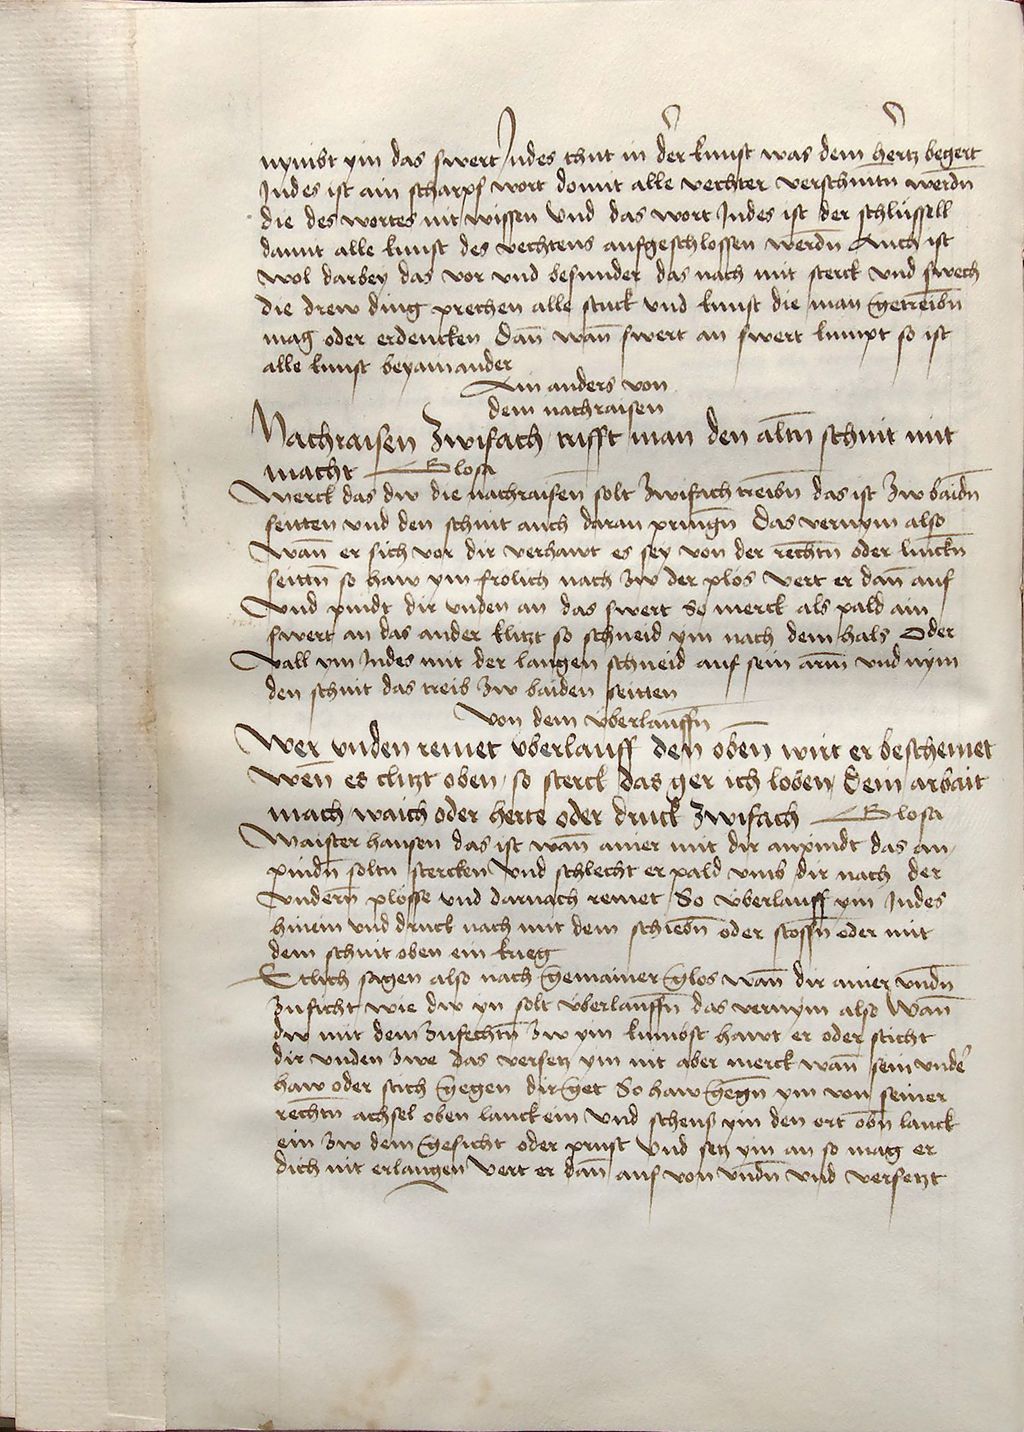 nymbt ym das swert Indes thut in der kunst was dem hertz begert
Indes ist ain scharpf wort domit alle vechter verschnitn werdn̄
die des wortes nit wissen Und das wort Indes ist der schlüssell
damit alle kunst des vechtens aufgeschlossen werdn̄ Auch ist
wol darbey das vor vnd besunder das nach mit sterck vnd swech
die drew ding prechen alle stuck vnd kunst die man getreibn̄
mag oder erdencken Dan̄ wan̄ swert an swert kumpt so ist
alle kunst beyainander
Ain anders von
dem nachraisen
Nachraisen zwifach trifft man den altn̄ schnit mit
macht Glosa
Merck das dw die nachraisen solt zwifach treibn̄ das ist zw baidn̄
seitten vnd den schnit auch daran pringn̄ Das vernym also
Wan̄ er sich vor dir verhawt es sey von der rechtn̄ oder linckn̄
seittn̄ so haw ym frolich nach zw der plös Vert er dan̄ auf
Vnd pindt dir vnden an das swert So merck als pald ain
swert an das ander klitzt so schneid ym nach dem hals Oder
Vall ym Indes mit der langen schneid auf sein arm̄ vnd nym
den schnit das treib zw baiden seitten
Von dem überlauffn̄
Wer vnden remet überlauff den oben wirt er beschemet
Wen̄ es clitzt oben so sterck das ger ich loben Dein arbait
mach waich oder herte oder druck zwifach Glosa
Maister hansen das ist wan̄ ainer mit dir anpindt das an
pindn̄ soltu stercken Und schlecht er pald vmb dir nach der
Undern̄ plösse vnd darnach remet So überlauff ym Indes
hinein vnd druck nach mit dem schiebn̄ oder stossn̄ oder mit
dem schnit oben ein krieg
Etlich sagen also nach gemainer glos wan̄ dir ainer vndn̄
zuficht wie dw yn solt überlauffn̄ das vernym also Wan̄
dw mit dem zufechtn̄ zw ym kumbst hawt er oder sticht
dir vnden zwe das versetz ym nit aber merck wan̄ sein vnder
haw oder stich gegen dir get So haw gegn̄ ym von seiner
rechtn̄ achsel oben lanck ein Und scheus ym den ort obn̄ lanck
ein zw dem gesicht oder prust Und setz ym an so mag er
dich nit erlangen Vert er dan̄ auf von vndn̄ vnd versetzt